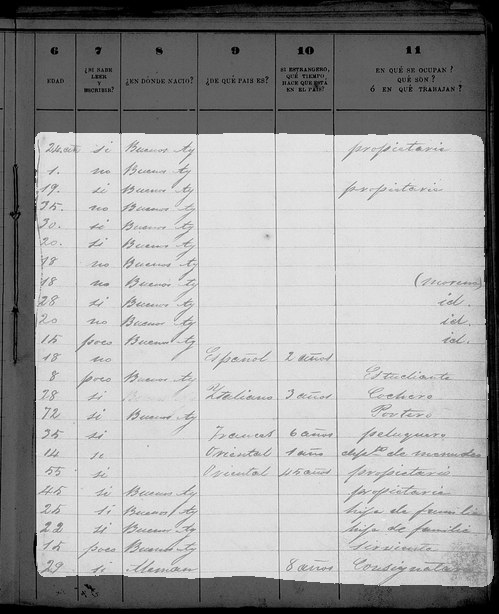 6 7 8 9 10 11
EDAD ¿SI SABE LEER Y ESCRIBIR? ¿EN DÓNDE NACIO? ¿DE QUÉ PAIS ES? SI EXTRANJERO, QUÉ TIEMPO HACE QUE ESTÁ EN EL PAÍS? EN QUÉ SE OCUPAR? QUÉ SON? Ó EN QUÉ TRABAJAN?
24 si Buenos Ay propietario
1. no Buenos Ay
19. si Buenos Ay propietario
35. no Buenos Ay
30. si Buenos Ay
20. si Buenos Ay
18 no Buenos Ay
18 no Buenos Ay (moreno)
28 si Buenos Ay id.
20 no Buenos Ay id.
15 poco Buenos Ay id.
18 no Español 2 años
8 poco Buenos Ay Estudiante
28 si Italiano 3 años Cochero
72 si Buenos Ay Portero
35 si Frances 6 años peluquero
14 Oriental 1 año
55 si Oriental 45 años propietario
45 si Buenos Ay propietaria
25 si Buenos Ay hija de familia
22 si Buenos Ay hija de familia
15 poco Buenos Ay sirviente
29 si Aleman 8 años